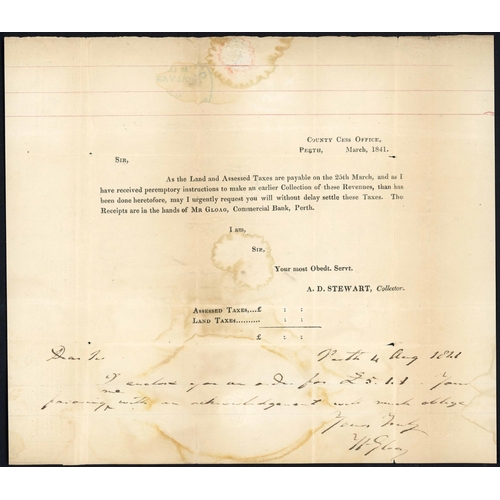 COUNTY CESS OFFICE,
PERTH, March, 1841.
SIR,
As the Land and Assessed Taxes are payable on the 25th March, and as I
have received peremptory instructions to make an earlier Collection of these Revenues, than has
been done heretofore, may I urgently request you will without delay settle these TAXES. The
Receipts are in the hands of MR GLOAG, Commercial Bank, Perth.
I am,
SIR,
Your most Obedt. Servt.
A. D. STEWART, Collector.
ASSESSED TAXES,...£ : :
LAND TAXES.......... : :
£ : :
Dear Sir Perth 4 Aug 1841
I enclose you an order for £5.1.1 Your
me
favoring with an acknowledgement will much oblige
Yours truly
W Gloag